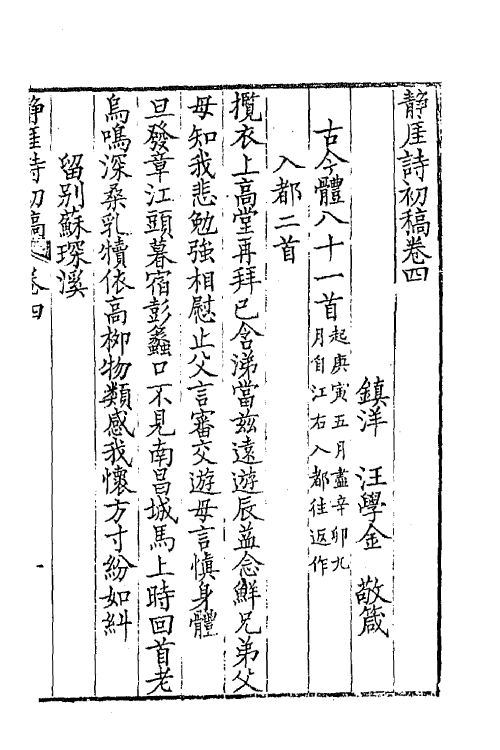 靜厓詩初稿卷四
鎮洋 汪學金 敬箴
古今體八十一首起庚寅五月盡辛卯九月自江右入都往返作
入都二首
攬衣上高堂再拜已含涕當茲遠遊辰益念鮮兄弟父
母知我悲勉強相慰止父言審交遊母言慎身體
旦發章江頭暮宿彭蠡口不見南昌城馬上時回首老
烏鳴深桑乳犢依高柳物類感我懷方寸紛如糾
留別蘇琛溪
靜厓詩初稿 卷四